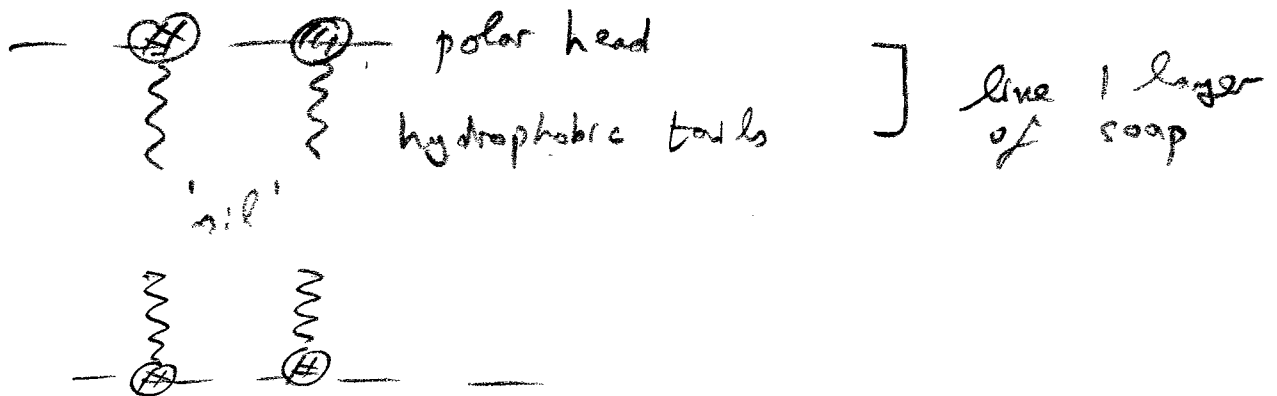 polar head
hydrophobic tails
line 1 layer
of soap
'oil'